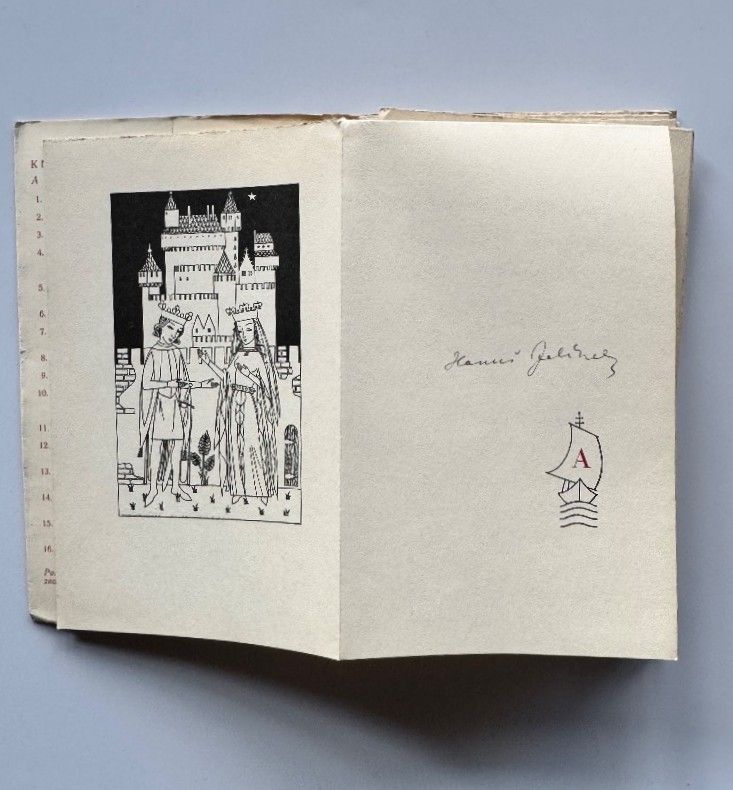 K
A
1.
2.
3.
4.
5.
6.
7.
8.
9.
10.
11.
12.
13.
14.
15.
16.
Hanuš Jelínek
A